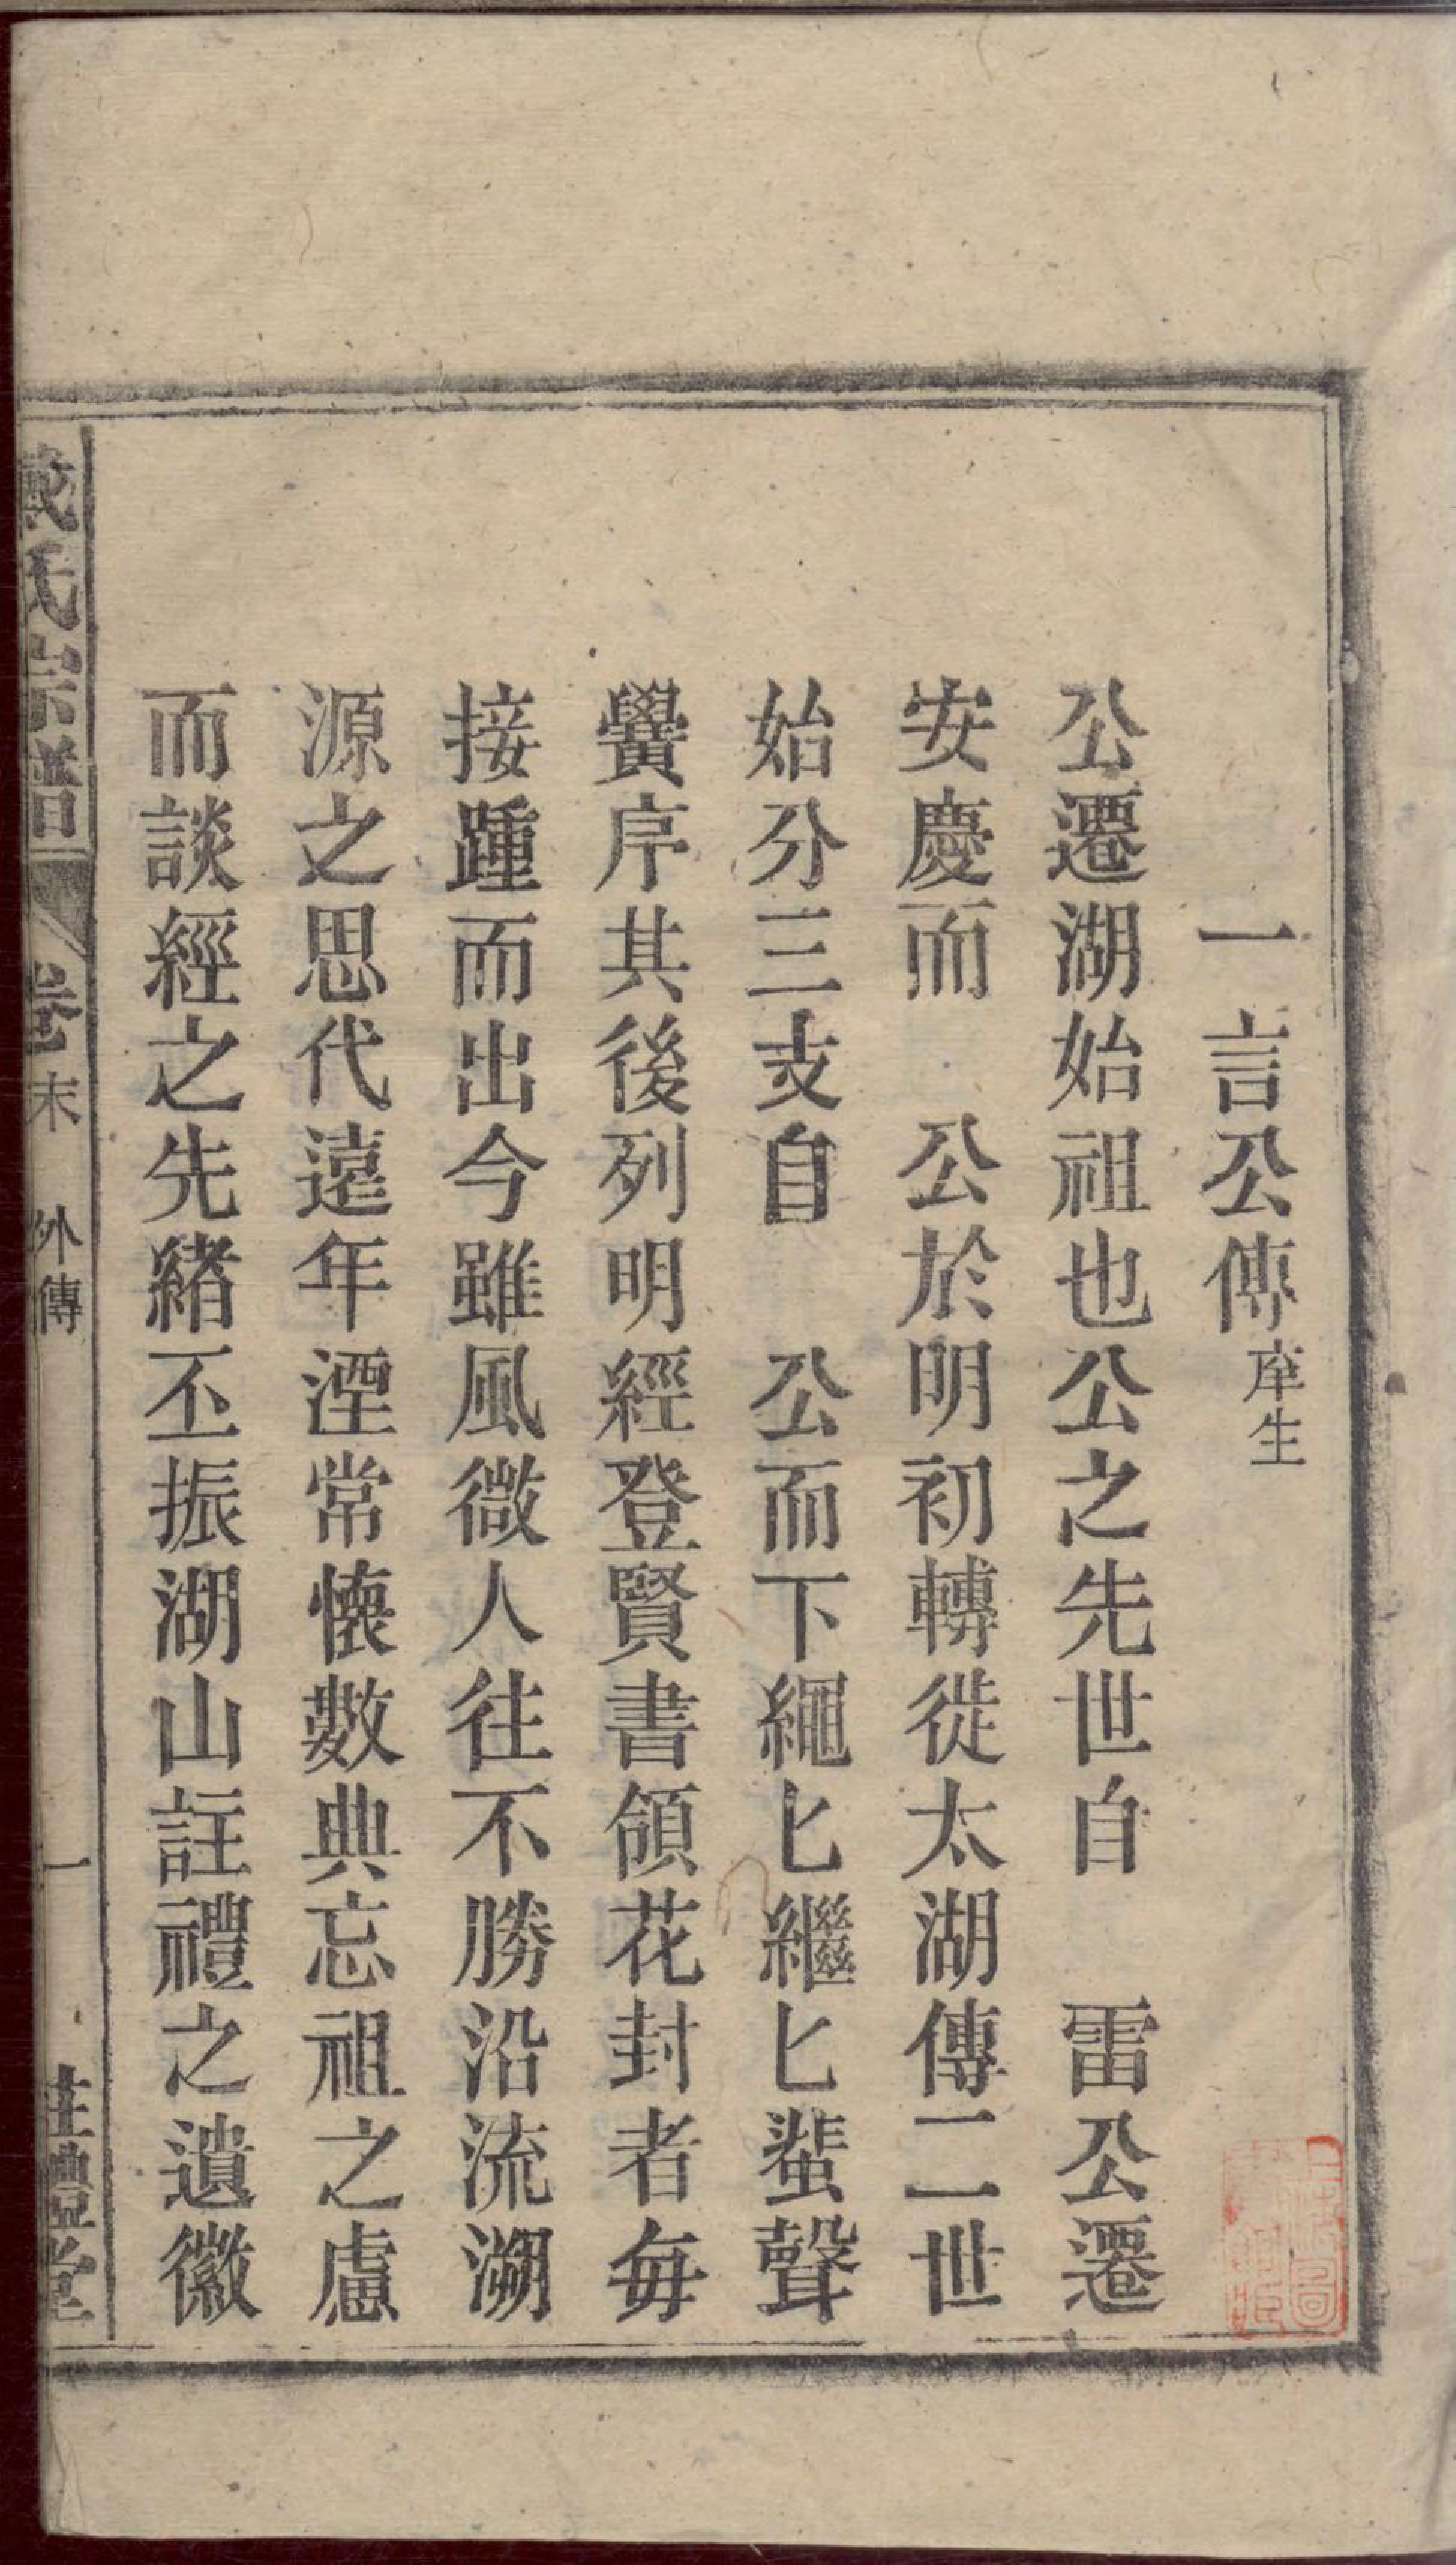 一言公傳 庠生
公遷湖始祖也公之先世自　雷公遷
安慶而　公於明初轉徙太湖傳二世
始分三支自　公而下繩匕繼匕蜚聲
黌序其後列明經登賢書領花封者每
接踵而出今雖風微人往不勝沿流溯
源之思代遠年湮常懷數典忘祖之慮
而談經之先緒丕振湖山註禮之遺徽
戴氏宗譜 卷末 外傳 一 註禮堂